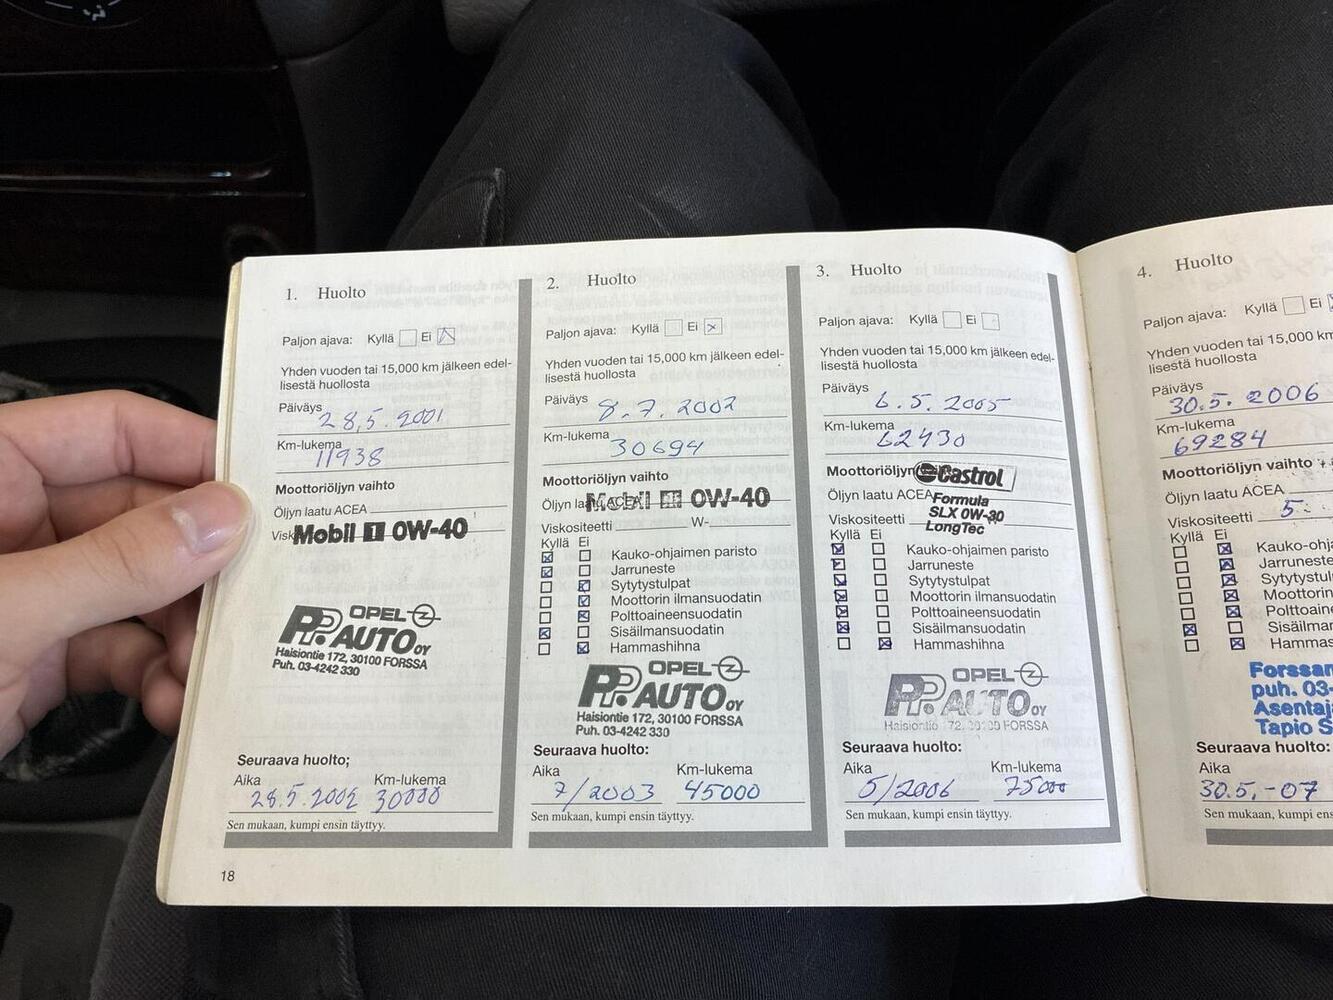 1. Huolto
Paljon ajava: Kyllä Ei
Yhden vuoden tai 15,000 km jälkeen edel-
lisestä huollosta
Päiväys 28.5.2001
Km-lukema 11938
Moottoriöljyn vaihto
Öljyn laatu ACEA
Mobil 1 0W-40
OPEL
PP. AUTO OY
Haisiontie 172, 30100 FORSSA
Puh. 03-4242 330
Seuraava huolto;
Aika Km-lukema
28.5.2002 30000
Sen mukaan, kumpi ensin täyttyy.
18
2. Huolto
Paljon ajava: Kyllä Ei
Yhden vuoden tai 15,000 km jälkeen edel-
lisestä huollosta
Päiväys 8.7.2002
Km-lukema 30694
Moottoriöljyn vaihto
Öljyn laatu ACEA Mobil 1 0W-40
Viskositeetti W-
Kyllä Ei
Kauko-ohjaimen paristo
Jarruneste
Sytytystulpat
Moottorin ilmansuodatin
Polttoaineensuodatin
Sisäilmansuodatin
Hammashihna
OPEL
PP. AUTO OY
Haisiontie 172, 30100 FORSSA
Puh. 03-4242 330
Seuraava huolto:
Aika Km-lukema
7/2003 45000
Sen mukaan, kumpi ensin täyttyy.
3. Huolto
Paljon ajava: Kyllä Ei
Yhden vuoden tai 15,000 km jälkeen edel-
lisestä huollosta
Päiväys 6.5.2005
Km-lukema 62430
Moottoriöljyn Castrol
Öljyn laatu ACEA Formula
SLX 0W-30
Viskositeetti LongTec
Kyllä Ei
Kauko-ohjaimen paristo
Jarruneste
Sytytystulpat
Moottorin ilmansuodatin
Polttoaineensuodatin
Sisäilmansuodatin
Hammashihna
OPEL
PP. AUTO OY
Haisiontie 172, 30100 FORSSA
Seuraava huolto:
Aika Km-lukema
5/2006 75000
Sen mukaan, kumpi ensin täyttyy.
4. Huolto
Paljon ajava: Kyllä Ei
Yhden vuoden tai 15,000 km
lisestä huollosta
Päiväys
30.5.2006
Km-lukema
69284
Moottoriöljyn vaihto
Öljyn laatu ACEA
Viskositeetti 5
Kyllä Ei
Kauko-ohj
Jarruneste
Sytytystul
Moottorin
Polttoaine
Sisäilman
Hammas
Forssan
puh. 03-
Asentaja
Tapio S
Seuraava huolto:
Aika
30.5.-07
Sen mukaan, kumpi ens